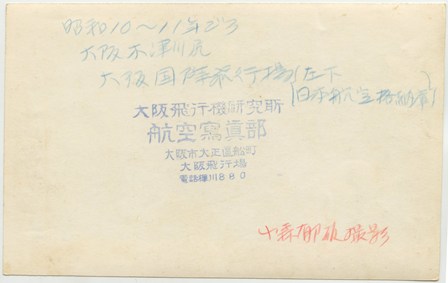 昭和10〜11年ごろ
大阪木津川尻
大阪国際飛行場(左下
(日本航空格納庫)
大阪飛行機研究所
航空寫眞部
大阪市大正區船町
大阪飛行場
電話櫻川880
撮影